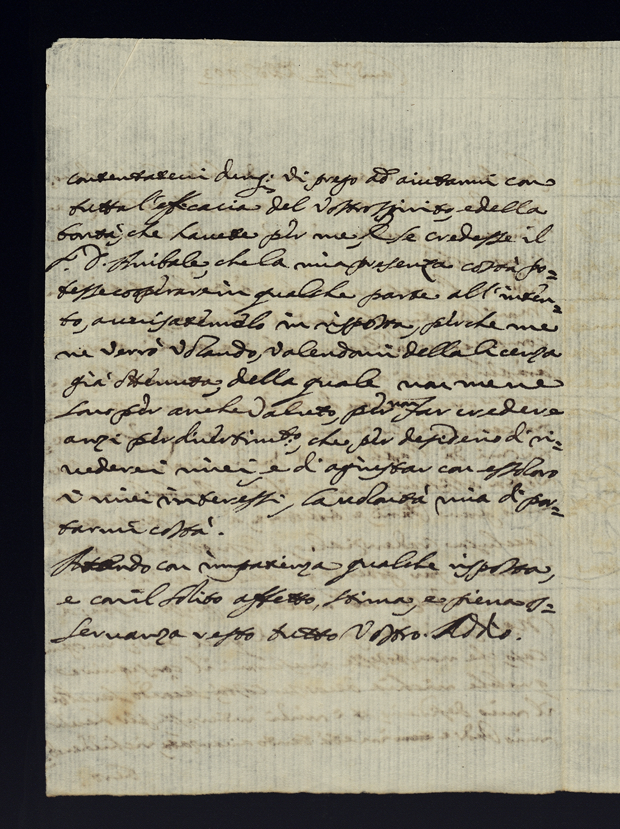 contentatevi dunq; vi prego ad aiutarmi con
tutta l'efficacia del vostro spirito, e della
bontà, che havete per me, se credesse il
P. D. Anibale, che la mia presenza costà po=
tesse cooperare in qualche parte all'inten=
to, avvisatemelo in risposta, perche me
ne verrò volando, valendomi della licenza
già ottenuta, della quale non me ne
sono per anche valuto, per non far credere
anzi per divertim.to, che per desiderio di ri=
vedere i miei, e di agiustar con essoloro
i miei interessi, la volontà mia di por=
tarmi costà.
Attendo con impazienza qualche risposta,
e con il solito affetto, stima, e piena os=
servanza resto tutto vostro. Addio.